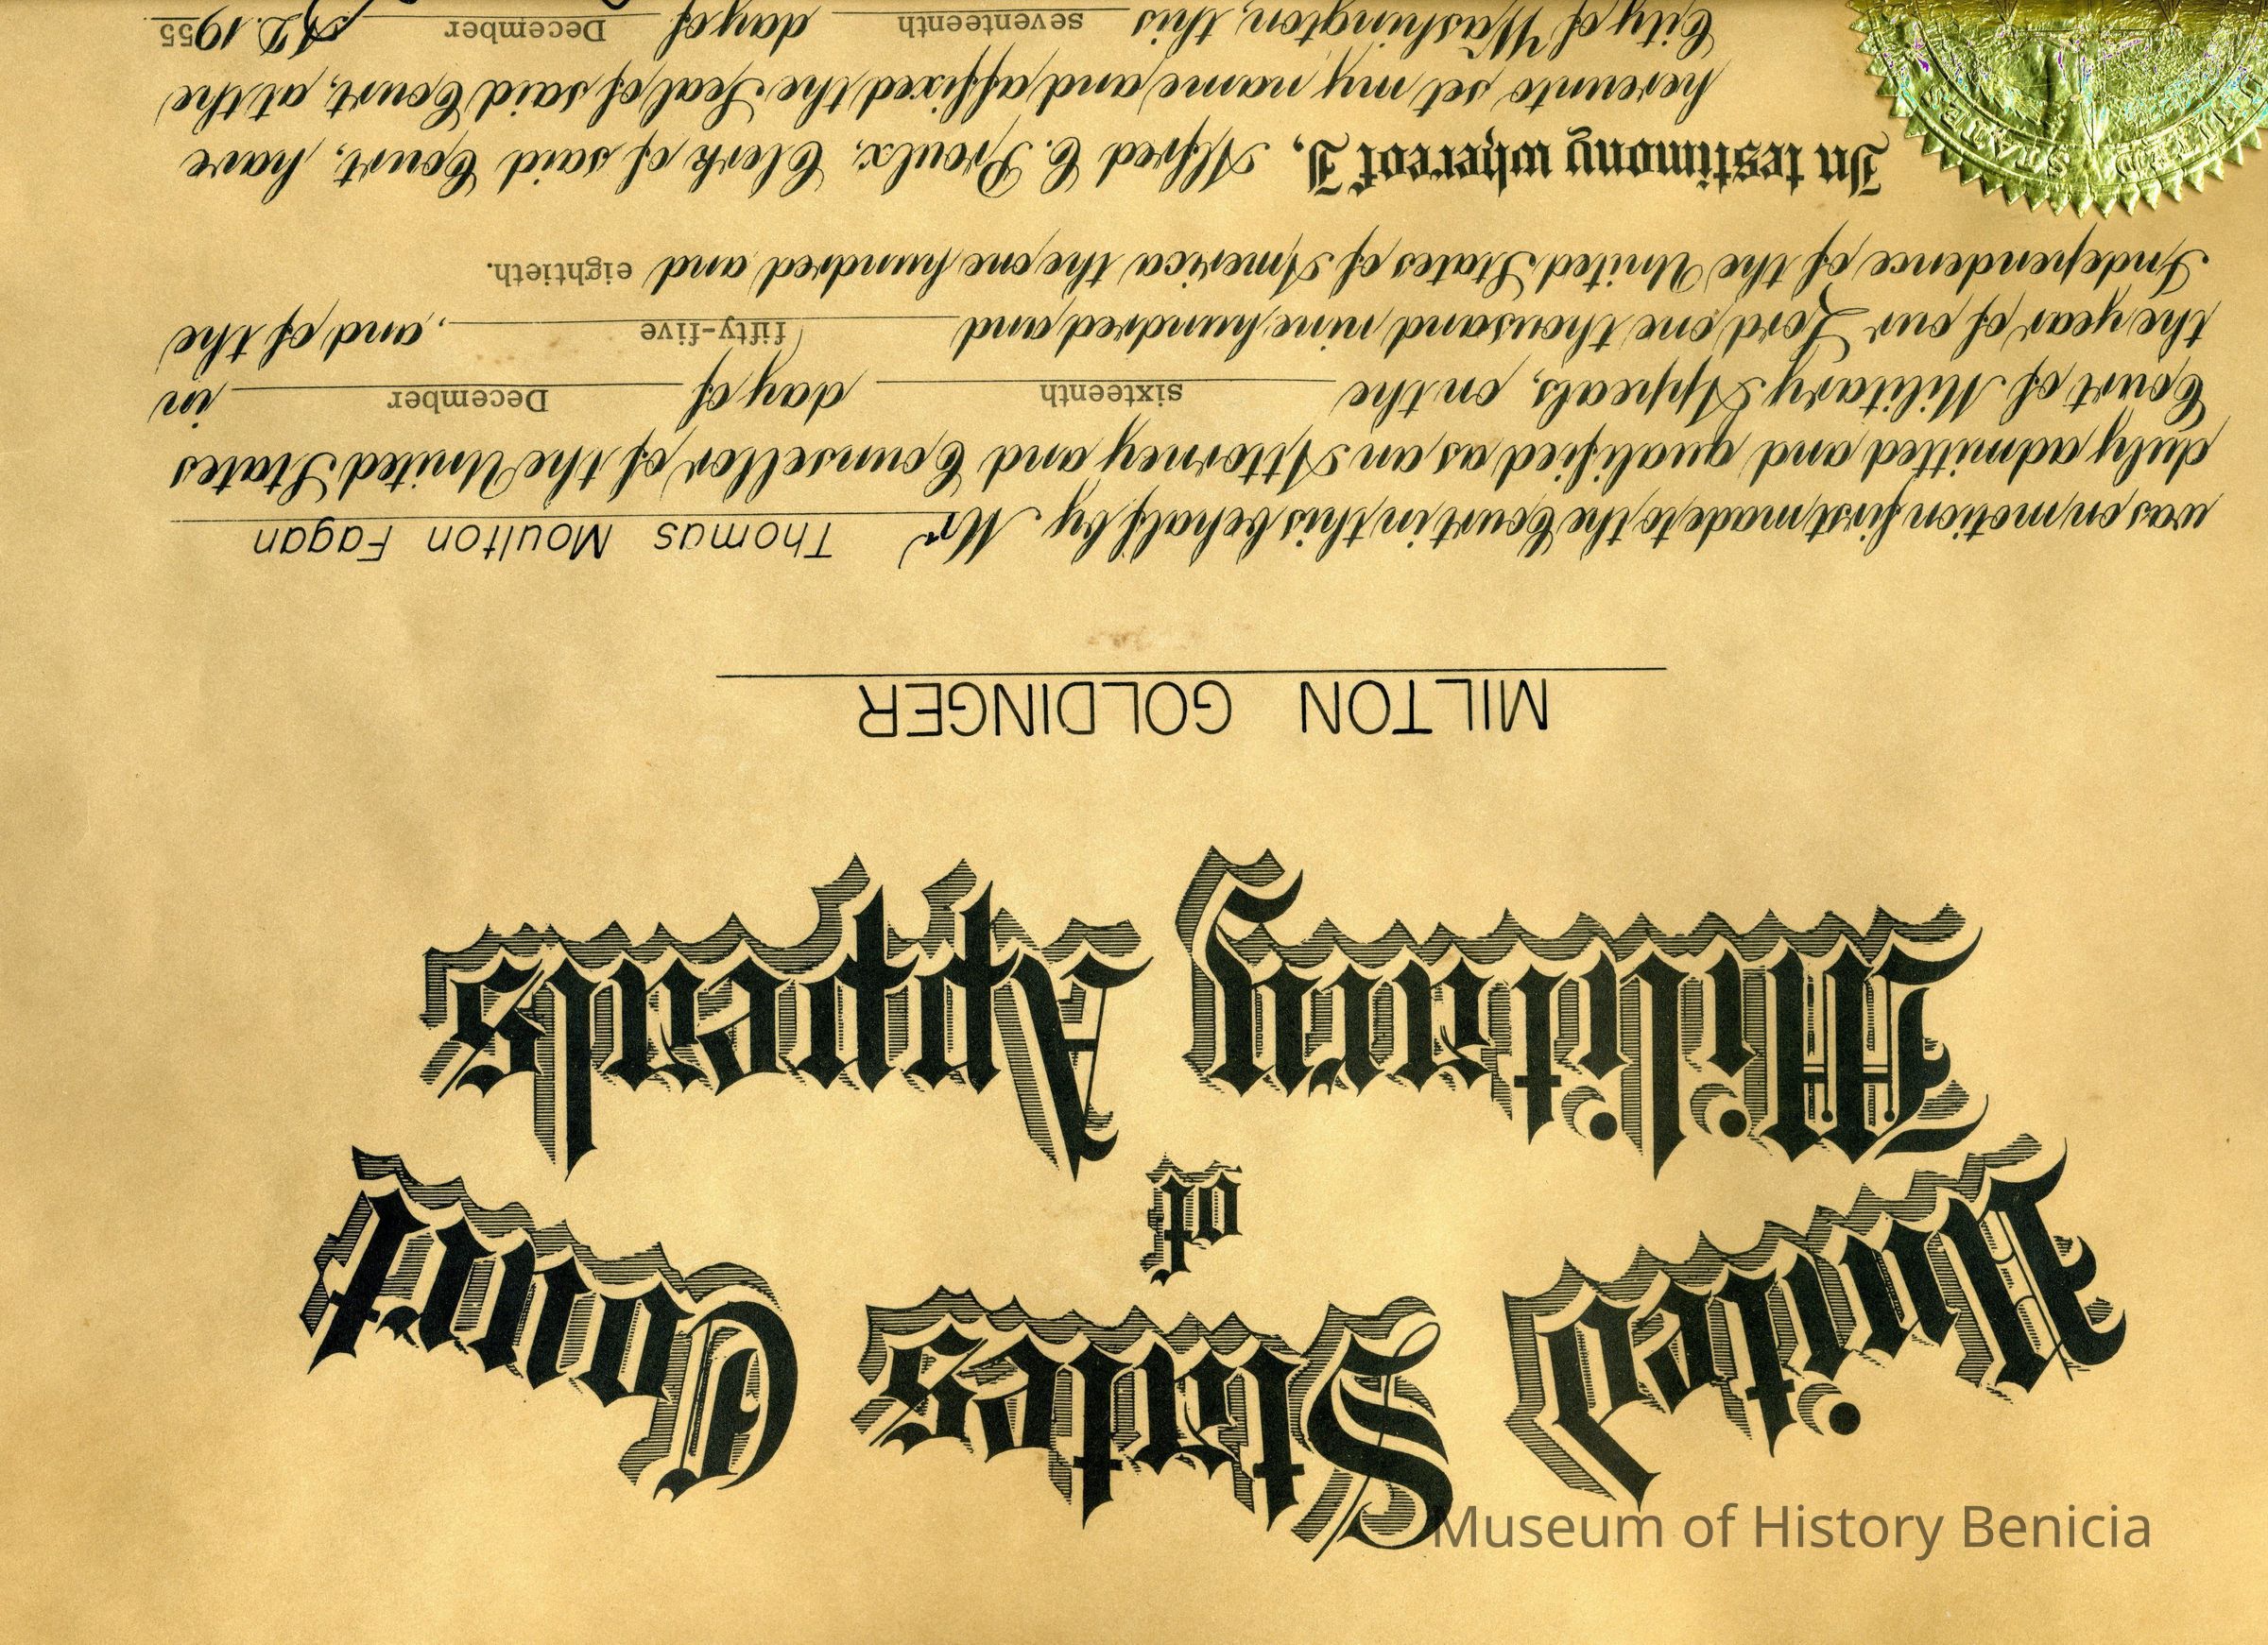 United States Court
of
Military Appeals
MILTON GOLDINGER
was on motion first made to the Court in this behalf by Mr Thomas Moulton Fagan
duly admitted and qualified as an Attorney and Counsellor of the United States
Court of Military Appeals, on the sixteenth day of December in
the year of our Lord one thousand nine hundred and fifty-five, and of the
Independence of the United States of America the one hundred and eightieth.
In testimony whereof I, Alfred C. Proulx, Clerk of said Court, have
hereunto set my name and affixed the Seal of said Court, at the
City of Washington, this seventeenth day of December A.D. 1955
UNITED STATES
Museum of History Benicia